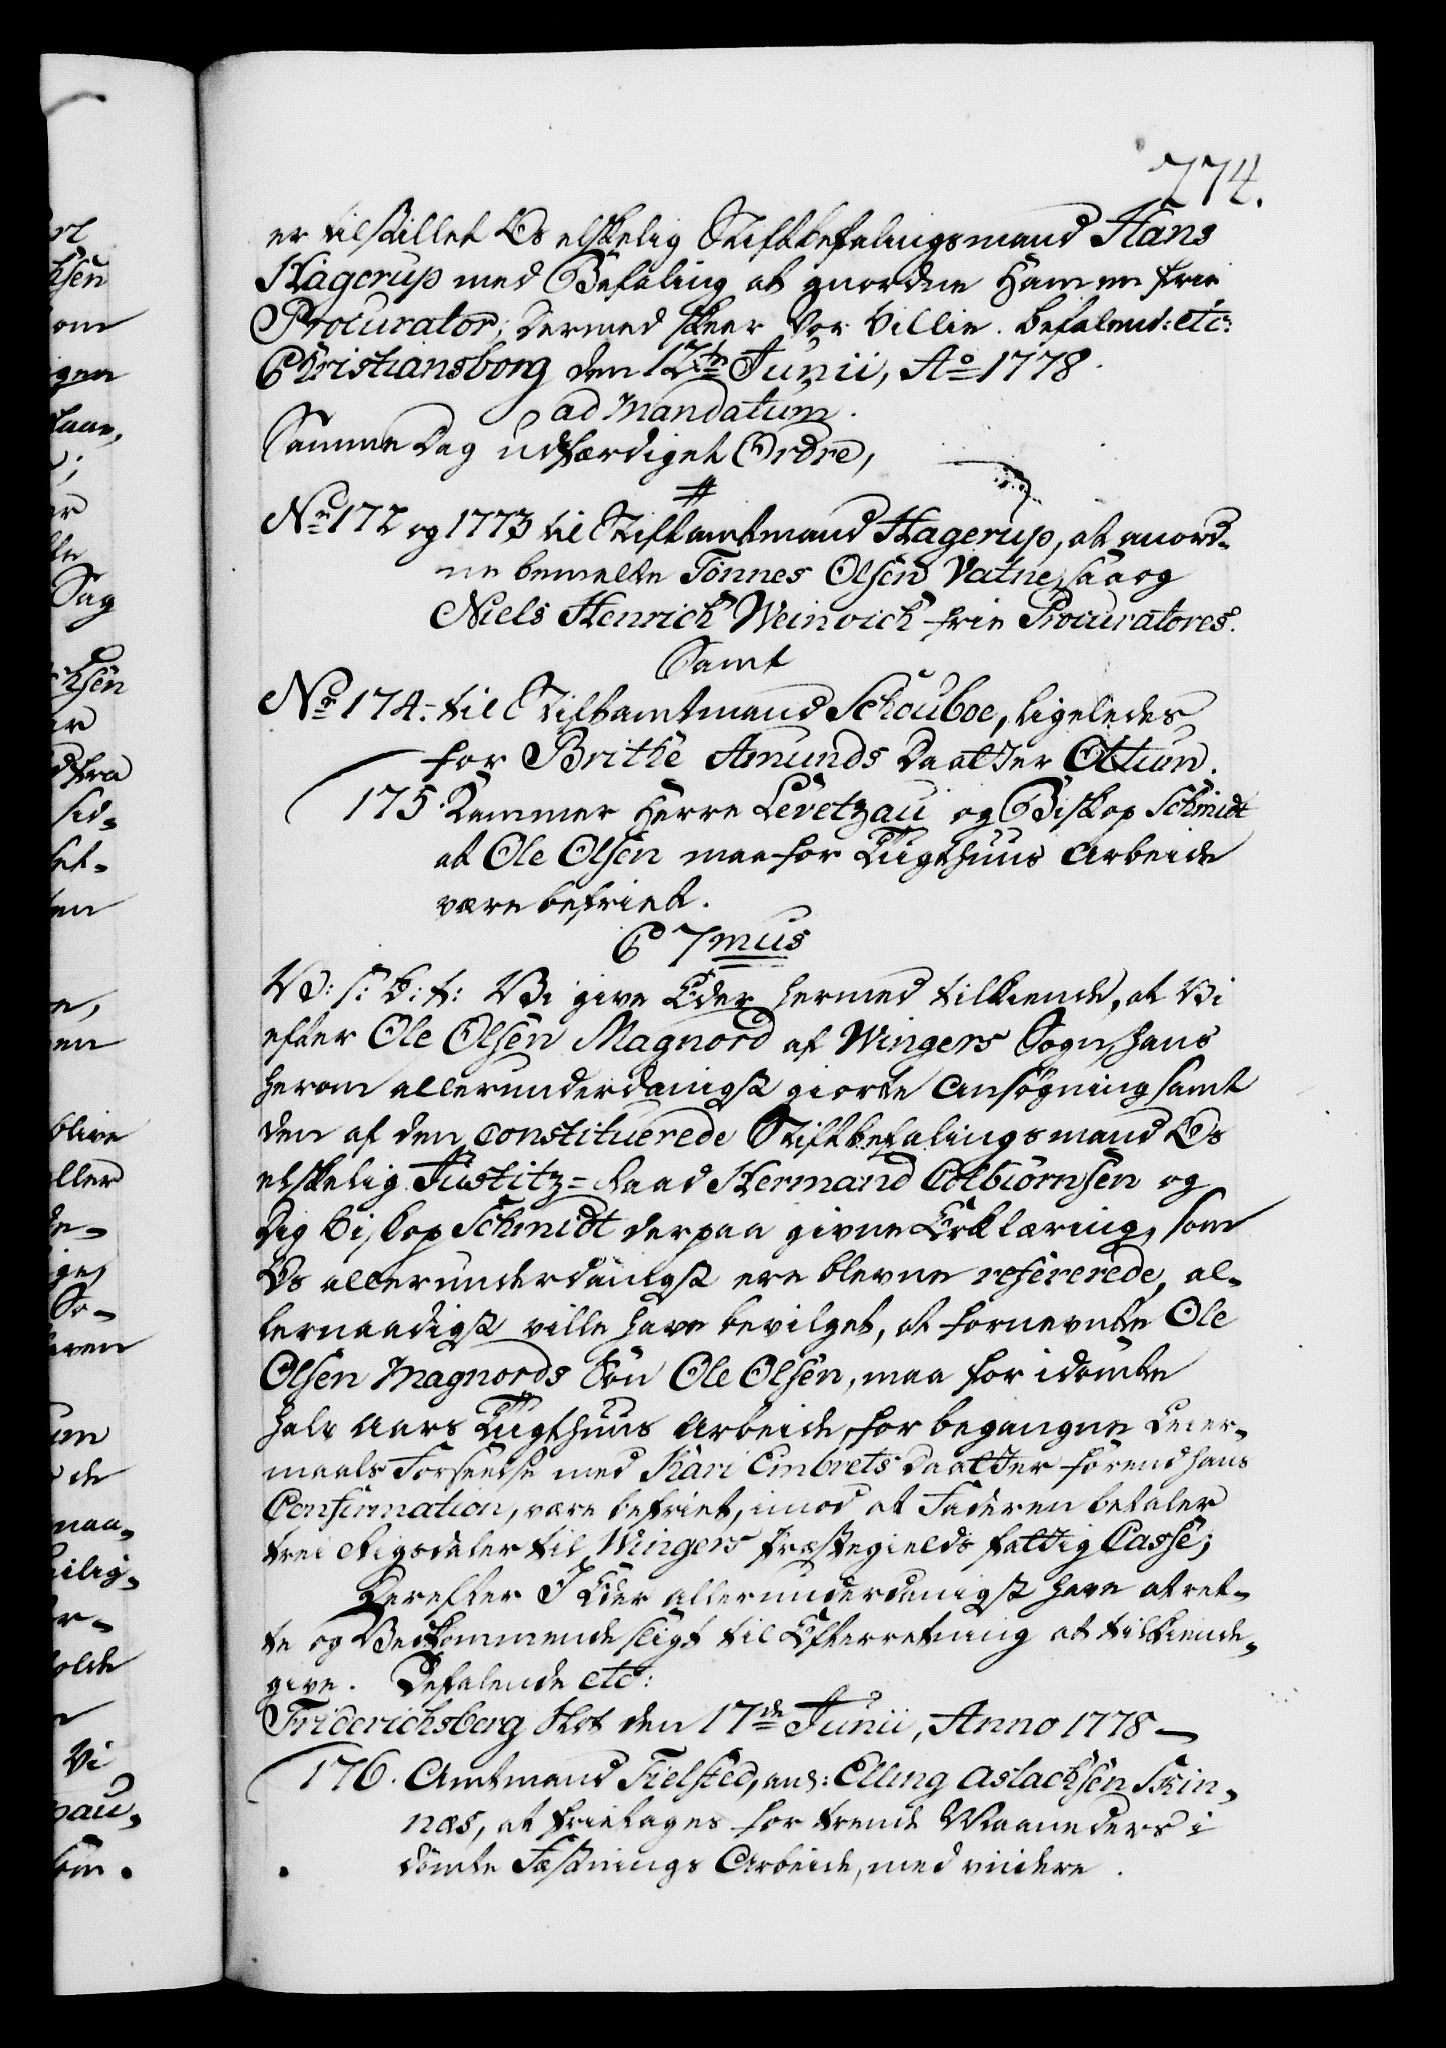 774.
er tilstillet Os elskelig Stiftbefalingsmand Hans
Hagerup med Befaling at anordne Ham en frie
Procurator; dermed skeer Vor Villie. befalend: etc:
Christiansborg den 12te Junii, Ao 1778.
ad Mandatum.
Samme Dag udfærdiget Ordre,
No 172 og 1773 til Stiftamtmand Hagerup, at anord-
ne bemelte Tönnes Olsen Vatne, saa og
Niels Henrich Weinvich frie Procuratores.
Samt
No 174. til Stiftamtmand Schouboe, ligeledes
for Brithe Amunds Daatter Ottun.
175. Kammer Herre Levetzau og Biskop Schmidt
at Ole Olsen maa for Tugthuus Arbeide
være befriet.
C 7mus
V: s: G: t: Vi give Eder hermed tilkiende, at Vi
efter Ole Olsen Magnord af Wingers Sogn, hans
herom allerunderdanigst giorte Ansøgning samt
den af den constituerede Stiftbefalingsmand Os
elskelig Justitz=Raad Hermand Colbiörnsen og
Dig Biskop Schmidt derpaa givne Erklæring, som
Os allerunderdanigst ere blevne refererede, al-
lernaadigst ville have bevilget, at fornevnte Ole
Olsen Magnords Sön Ole Olsen, maa for idömte
halv Aars Tugthuus Arbeide, for begangne Leier-
maals Forseelse med Kari Embrets Daatter förend hans
Confirmation, være befriet, imod at Faderen betaler
trei Rigsdaler til Wingers Præstegields fattig Casse;
Derefter I Eder allerunderdanigst have at ret-
te og Vedkommende sligt til Efterretning at tilkiende-
give. Befalende etc:
Friderichsberg Slot den 17de Junii, Anno 1778 —
176. Amtmand Fielsted, anl: Elling Aslachsen Skin-
næs, at fritages for trende Maaneders i
dömte Fæstnings Arbeide, med videre.